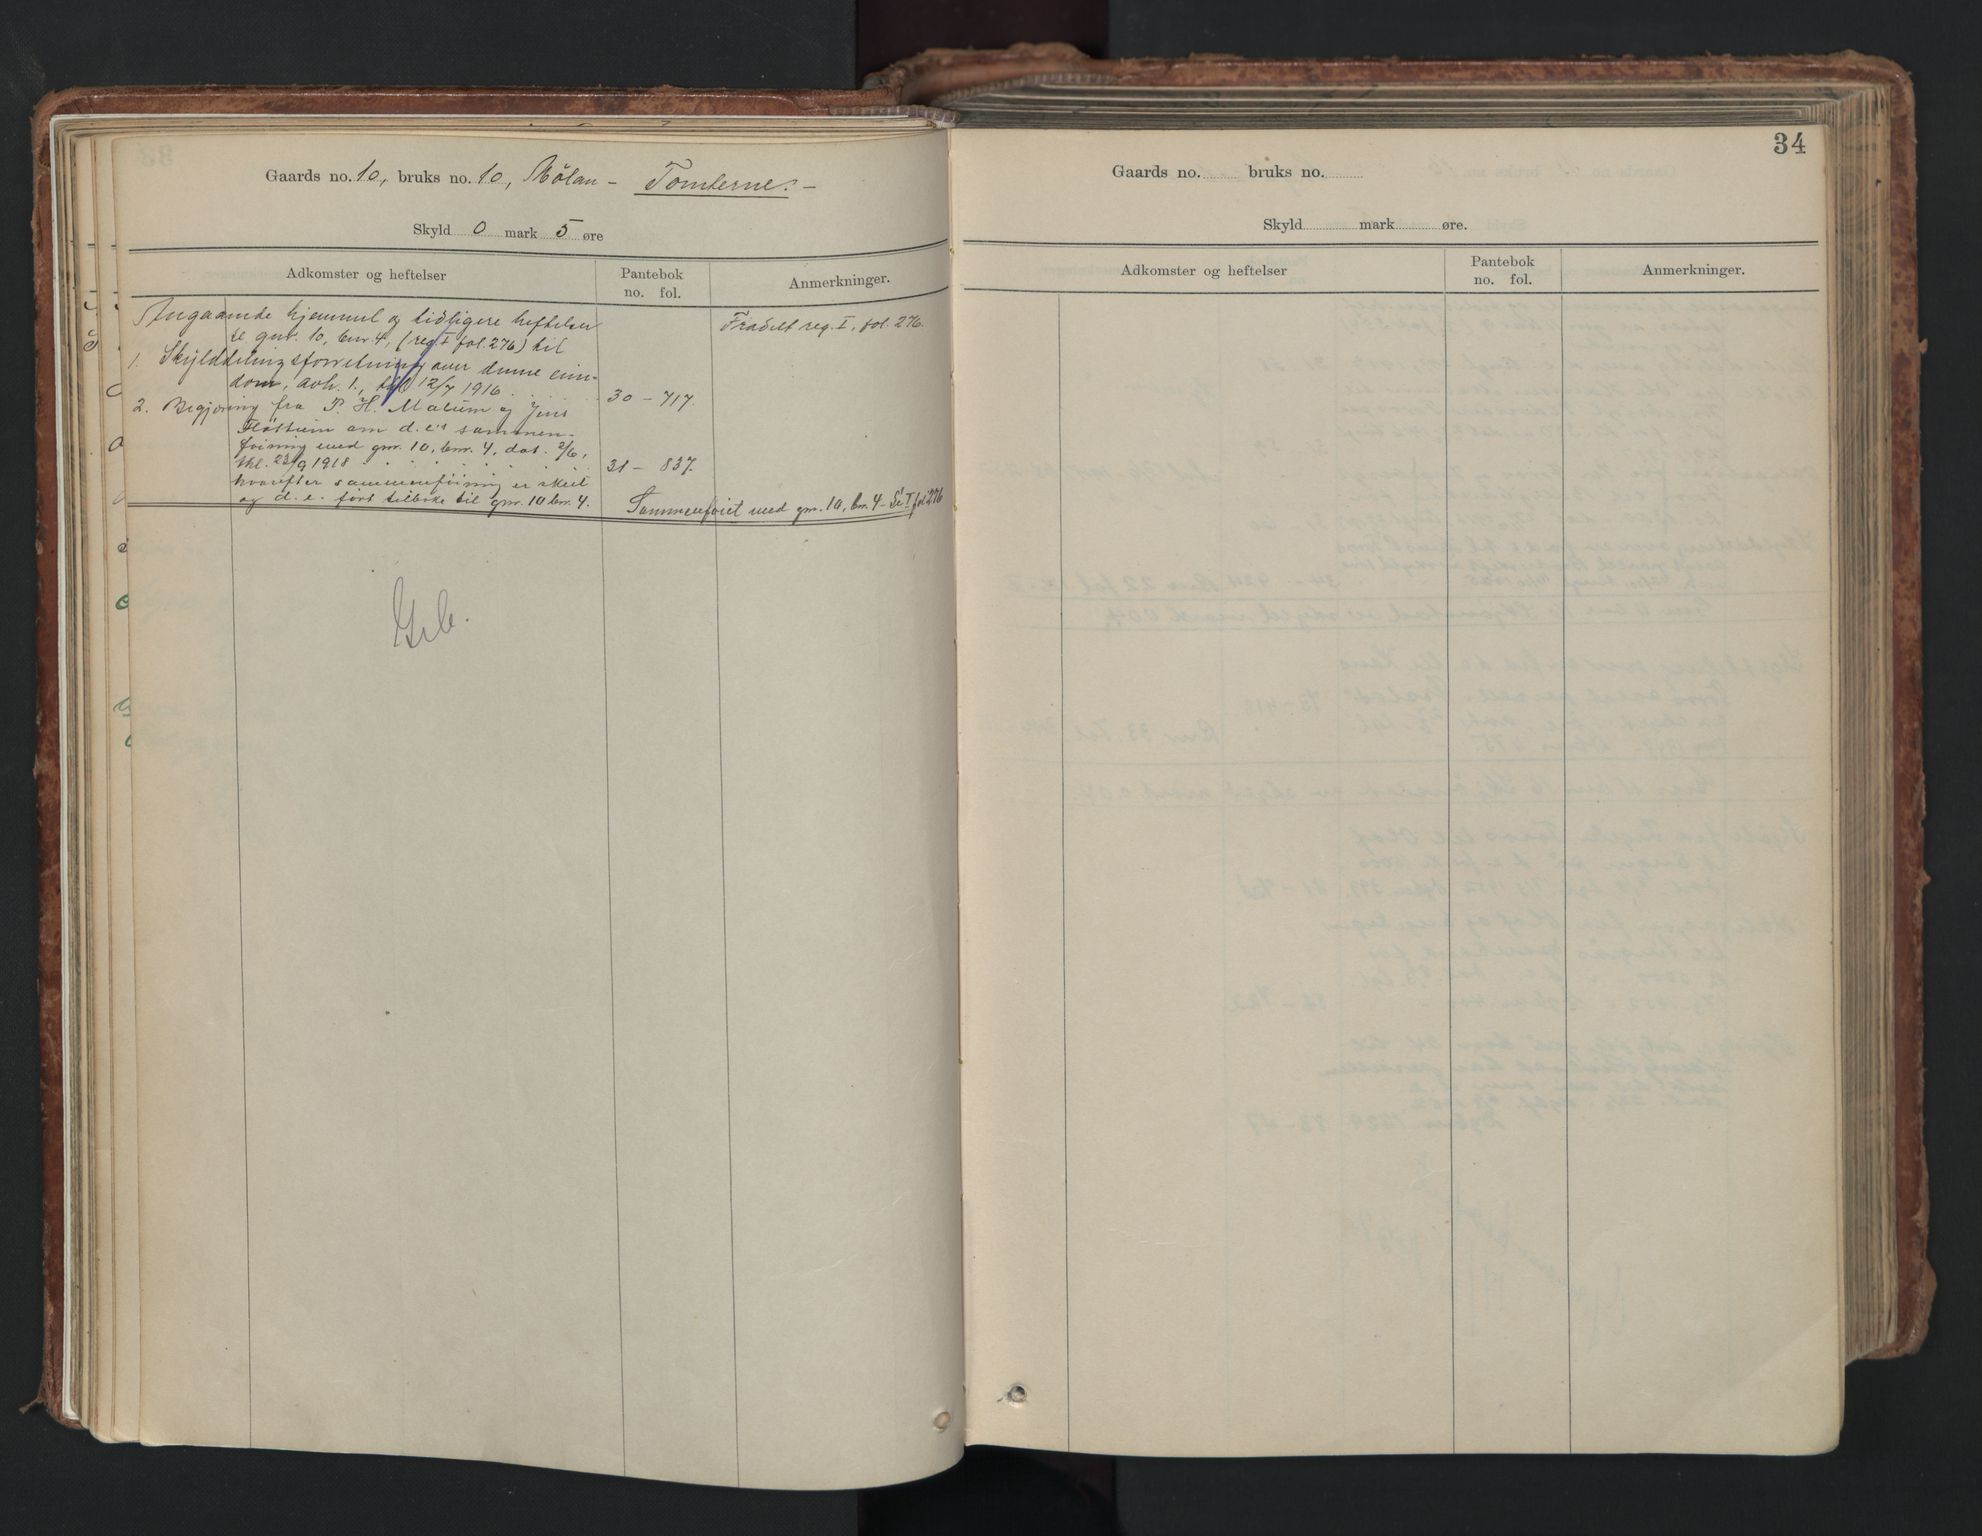 Gaards no. 10, bruks no. 10, Mölan - Tomterne. -
Skyld 0 mark 5 øre
Adkomster og heftelser
Pantebok
no. fol.
Anmerkninger.
Angaaende hjemmel og tidligere heftelser
se gnr. 10, bnr. 4, (reg I fol. 276) til
Fradelt reg. I, fol. 276.
1. Skylddelingsforretning over denne eien-
dom, avh. 1., tgl. 12/7 1916
30 - 717.
2. Begjæring fra P. H. Malum og Jens
Fløttum om d. e's sammen-
føining med gnr. 10, bnr. 4, dat. 2/6,
thl. 23/9 1918
31 - 837.
hvorefter sammenføining er skeet
og d. e. ført tilbake til gnr. 10 bnr. 4.
Sammenføiet med gnr. 10, bnr. 4 - Se I fol 276
34
Gaards no. bruks no.
Skyld mark øre.
Adkomster og heftelser
Pantebok
no. fol.
Anmerkninger.